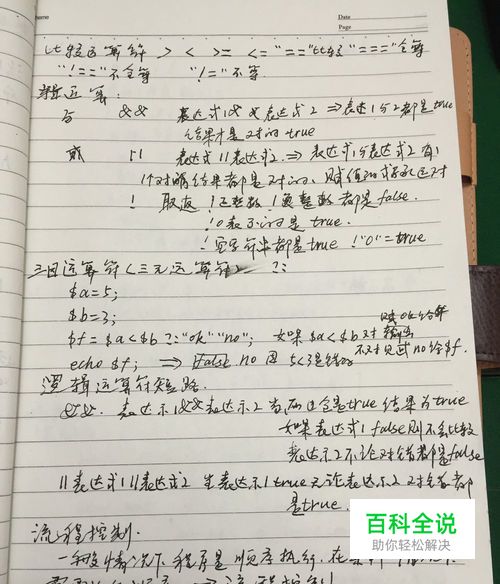 Date
Page
比较运算符 > < >= <= "==" 比较 "===" 全等
"!==" 不全等 "!=" 不等.
逻辑运算:
与 && 表达式1 && 表达式2 ⇒ 表达式1与2都是true
结果才是对的 true
或 || 表达式1 || 表达式2 ⇒ 表达式1与表达式2 有
1个对哪结果都是对的,
! 取返 !正整数 !负整数 都是false.
!0表示的是 true.
!空字符串都是true !"0"=true
三目运算符<三元运算符> ?:
$a=5;
$b=3;
$f=$a<$b ?:"ok" "no"; 如果 $a<$b 对
不对 no 给 $f.
echo $f; ⇒ False. no 因 5<3是错的
逻辑运算符短路.
&&. 表达示1&&表达示2 当两边全是true 结果为true
如果表达式1 false则不会比较
表达示2 不论对错都是false
|| 表达式1||表达式2 当表达示1 true 无论表达示2 对错都
是true.
流程控制.
一般情况下 程序是顺序执行. 在
百科全说
助你轻松解决